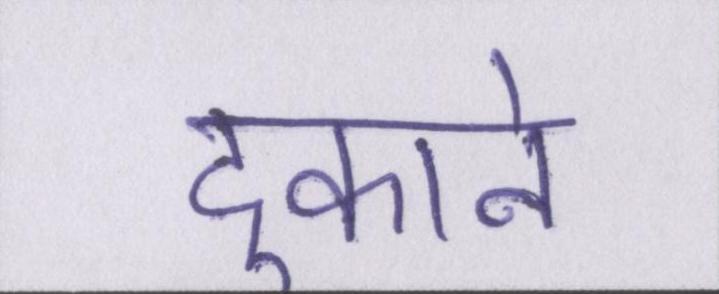 दुकाने